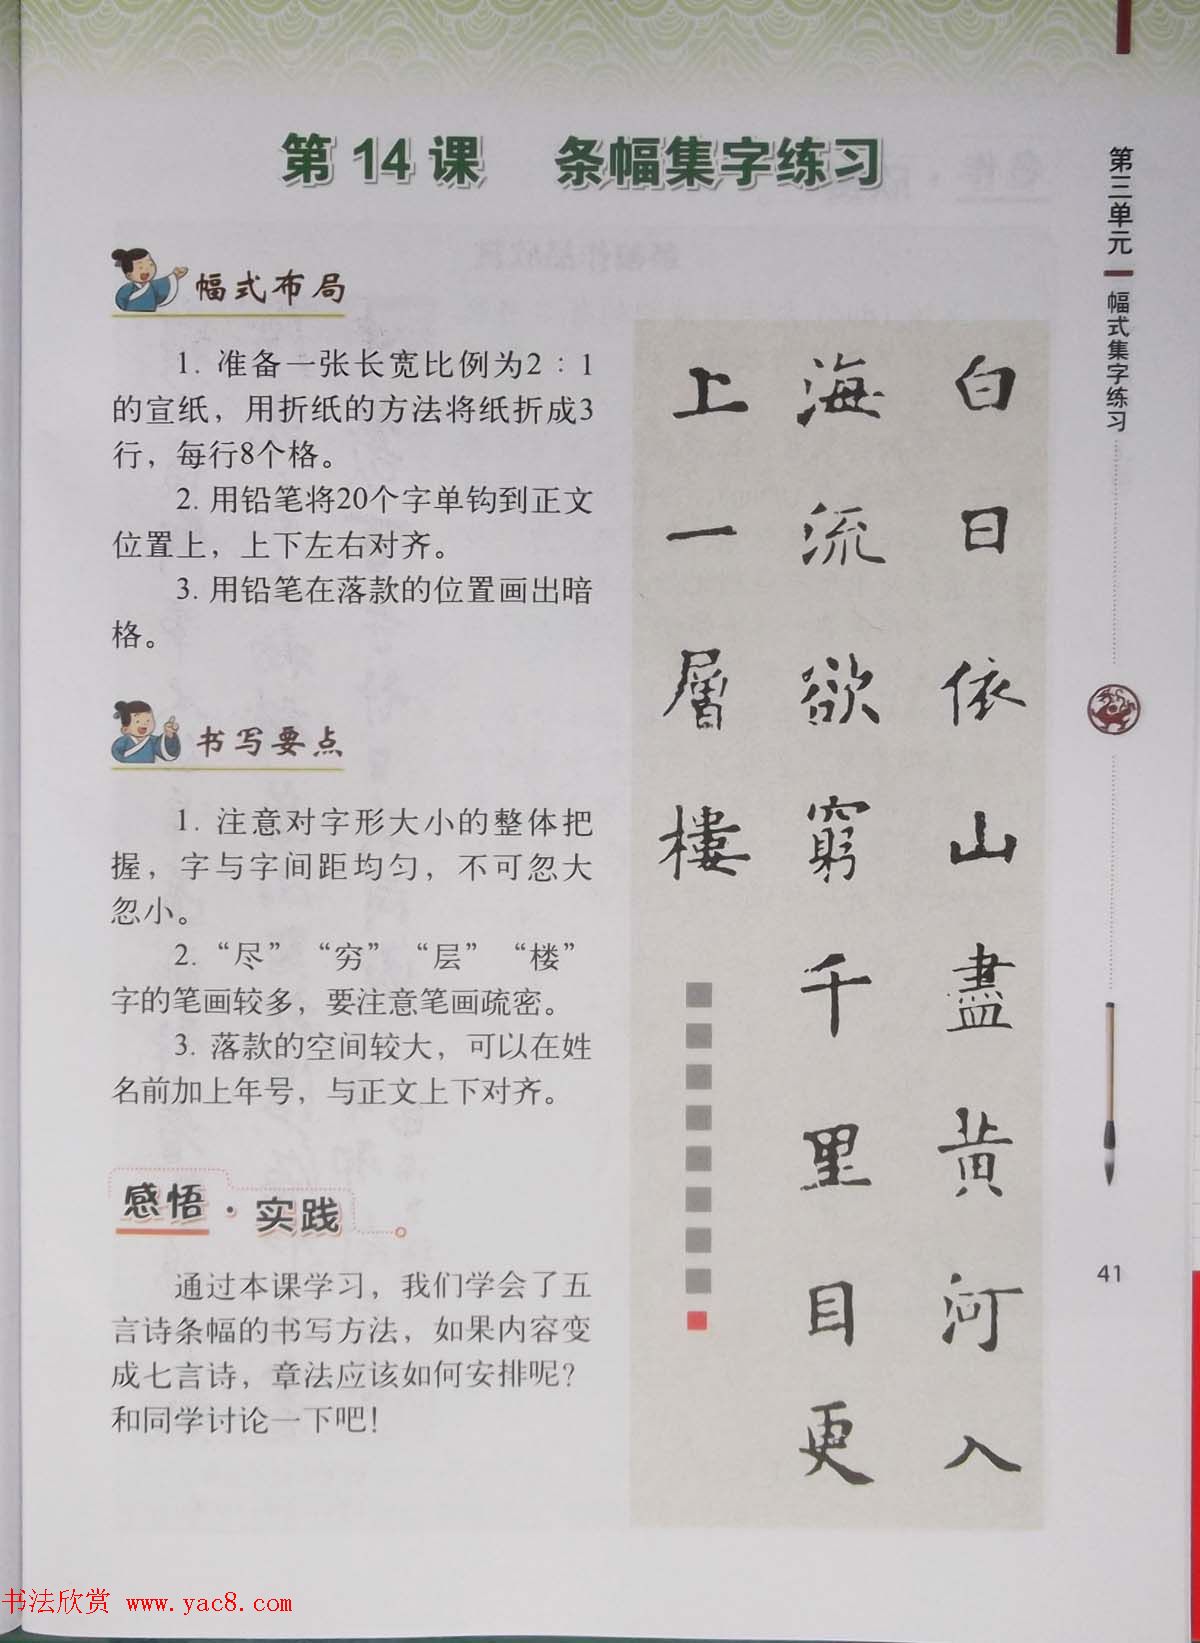 第14课 条幅集字练习
幅式布局
1. 准备一张长宽比例为2：1
的宣纸，用折纸的方法将纸折成3
行，每行8个格。
2. 用铅笔将20个字单钩到正文
位置上，上下左右对齐。
3. 用铅笔在落款的位置画出暗
格。
书写要点
1. 注意对字形大小的整体把
握，字与字间距均匀，不可忽大
忽小。
2. “尽”“穷”“层”“楼”
字的笔画较多，要注意笔画疏密。
3. 落款的空间较大，可以在姓
名前加上年号，与正文上下对齐。
感悟·实践
通过本课学习，我们学会了五
言诗条幅的书写方法，如果内容变
成七言诗，章法应该如何安排呢？
和同学讨论一下吧！
白日依山盡黄河入
海流欲窮千里目更
上一層樓
第三单元
幅式集字练习
41
书法欣赏 www.yac8.com